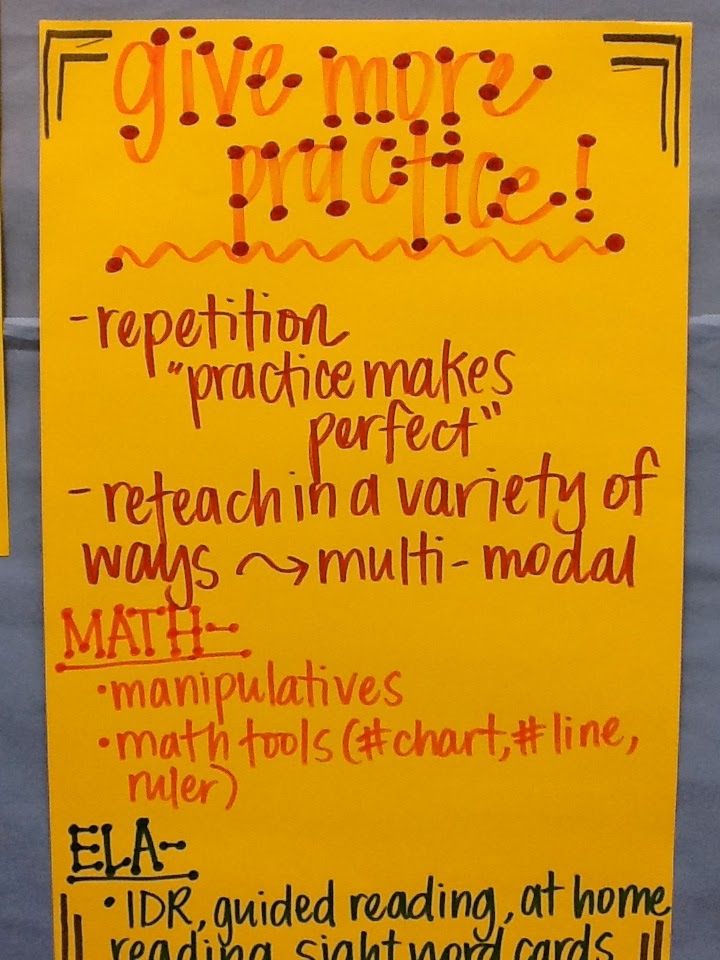 give more
practice!
- repetition
"practice makes
perfect"
- reteach in a variety of
ways ⤳ multi-modal
MATH-
• manipulatives
• math tools (#chart, #line,
ruler)
ELA-
• IDR, guided reading, at home
reading, sight word cards